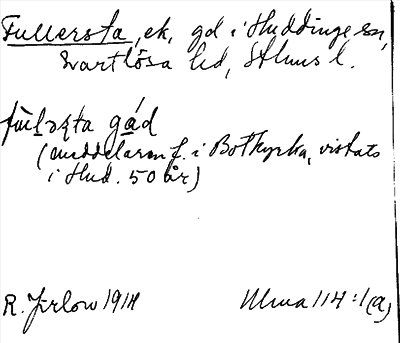 Fullersta, ek, gd i Huddinge sn,
Svartlösa hd, Sthlms l.
fùlәsta gád
(meddelaren f. i Botkyrka, vistats
i Hud. 50 år)
R. Jirlow 1914 Ulma 114:1(a)